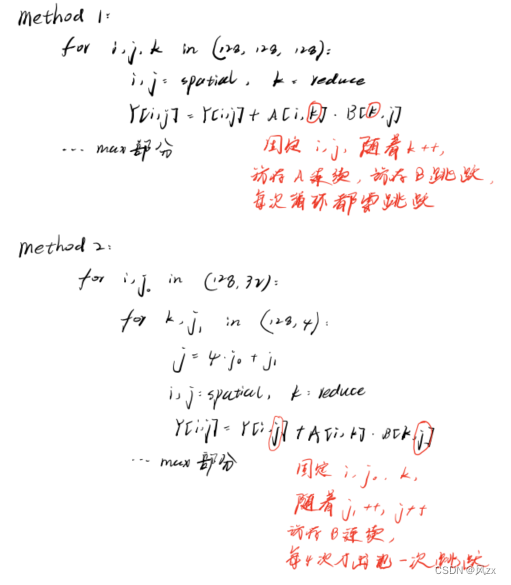 method 1:
for i,j,k in (128, 128, 128):
i,j = spatial, k = reduce
Y[i,j] = Y[i,j] + A[i,k] · B[k,j]
... max部分
固定 i,j, 随着 k++,
访存 A 连续, 访存 B 跳跃,
每次循环都需跳跃
method 2:
for i,j₀ in (128, 32):
for k,j₁ in (128, 4):
j = 4·j₀ + j₁
i,j = spatial, k = reduce
Y[i,j] = Y[i,j] + A[i,k] · B[k,j]
... max部分
固定 i, j₀, k,
随着 j₁++, j++
访存 B 连续,
每4次才出现一次跳跃
CSDN @JAzx